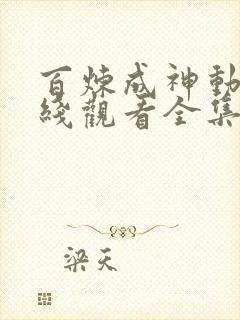 百炼成神動
綫觀看全集
梁天